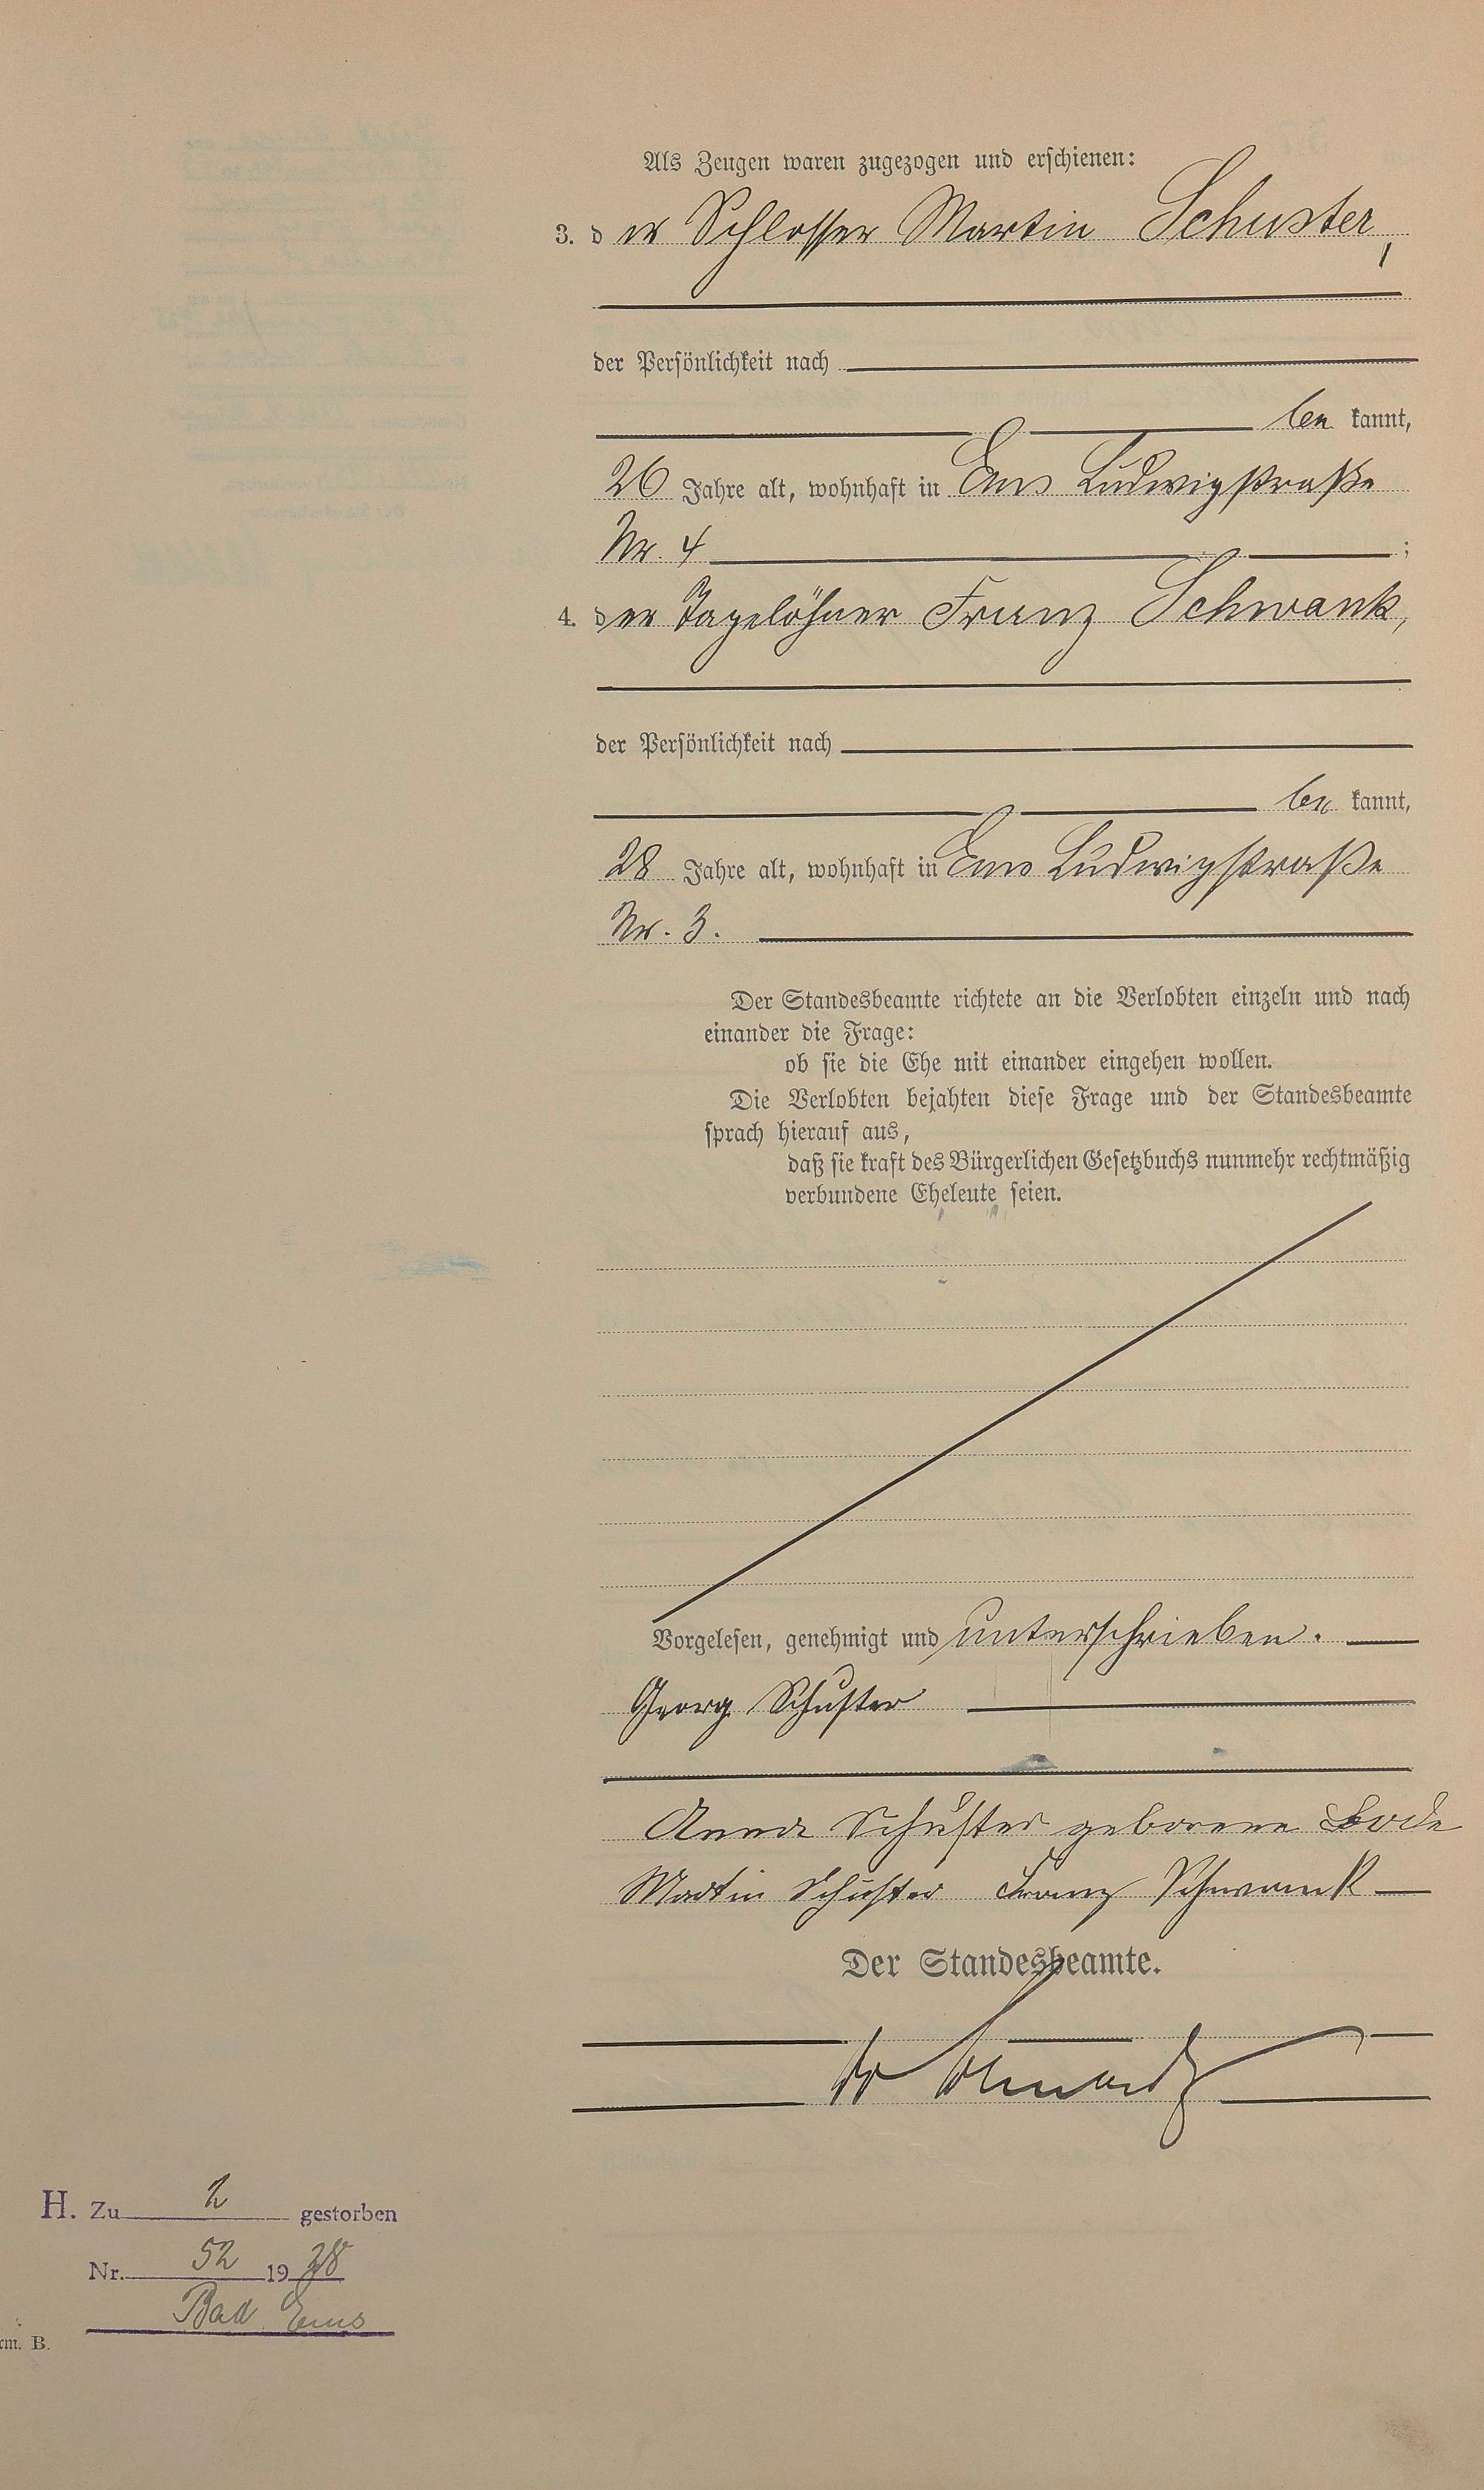 Als Zeugen waren zugezogen und erschienen:
3. der Schlosser Martin Schuster,
der Persönlichkeit nach
be kannt,
26 Jahre alt, wohnhaft in Ems Ludwigstraße
Nr. 4 ;
4. der Tagelöhner Franz Schwank,
der Persönlichkeit nach
be kannt,
28 Jahre alt, wohnhaft in Ems Ludwigstraße
Nr. 3.
Der Standesbeamte richtete an die Verlobten einzeln und nach
einander die Frage:
ob sie die Ehe mit einander eingehen wollen.
Die Verlobten bejahten diese Frage und der Standesbeamte
sprach hierauf aus,
daß sie kraft des Bürgerlichen Gesetzbuchs nunmehr rechtmäßig
verbundene Eheleute seien.
Vorgelesen, genehmigt und unterschrieben.
Georg Schuster
Anna Schuster geborene Bode
Martin Schuster Franz Schwank
Der Standesbeamte.
H. Zu 2 gestorben
Nr. 52 1938
Bad Ems
rm. B.